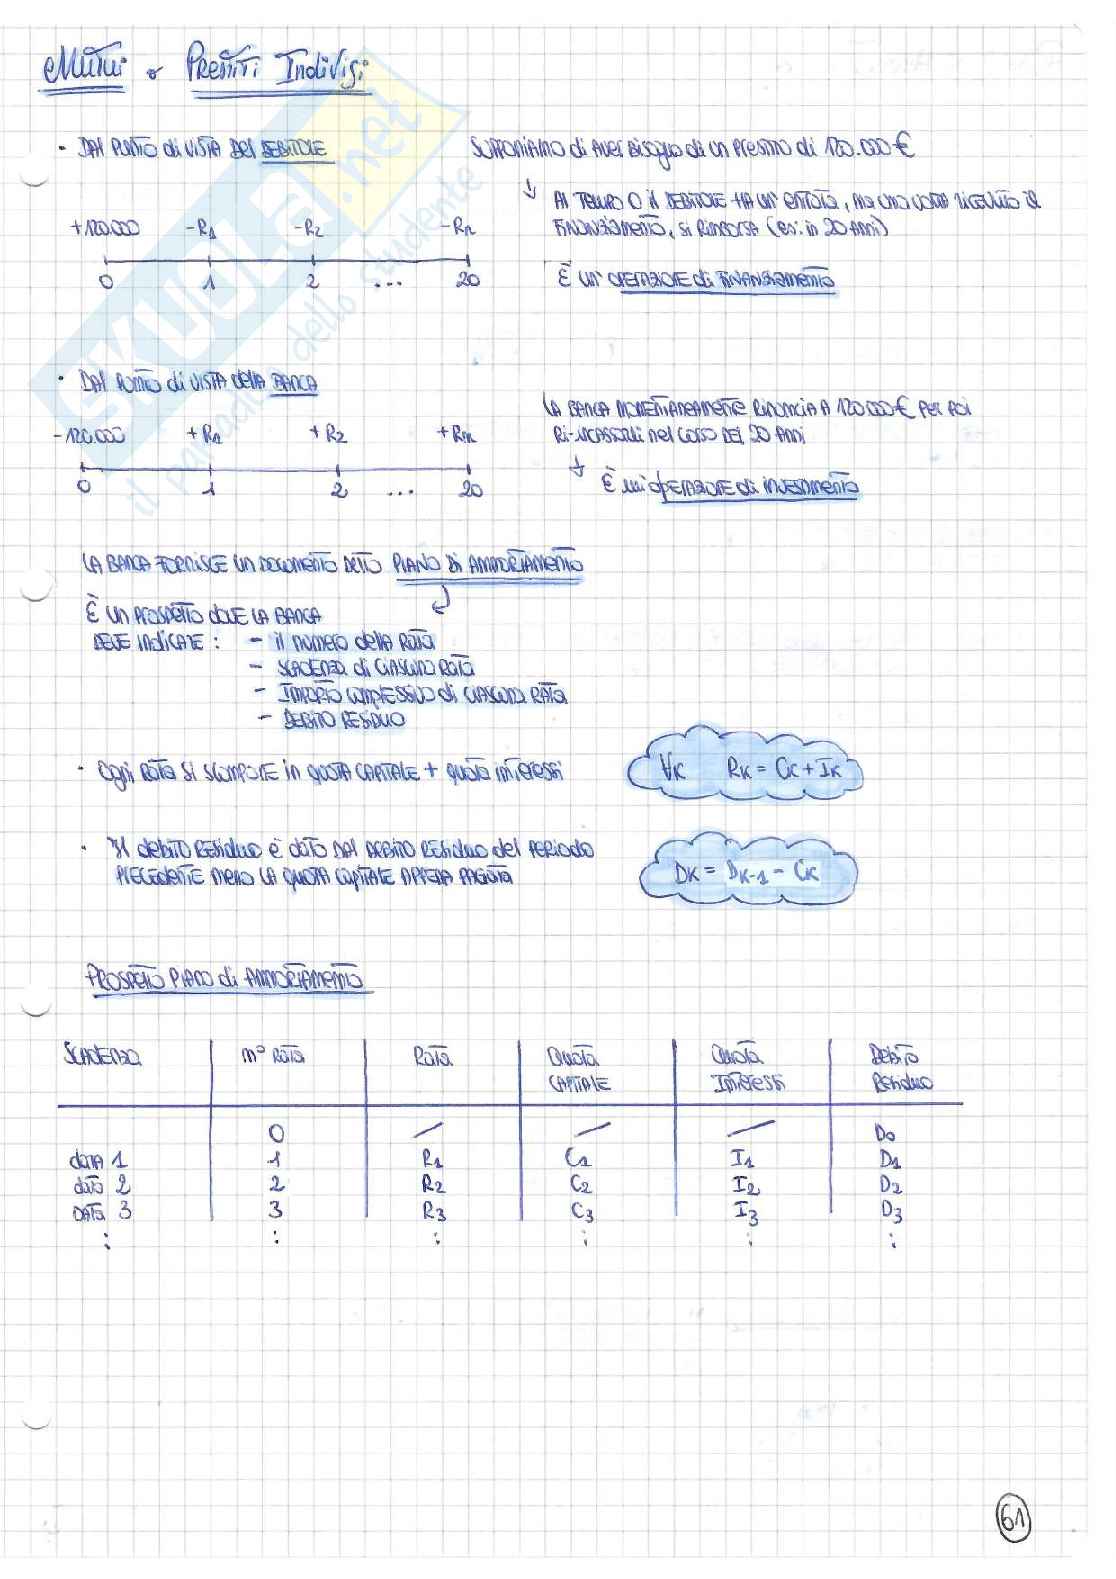 Mutui o Prestiti Indivisi
- DAL PUNTO di VISTA DEL DEBITORE
SUPPONIAMO di AVER BISOGNO di un PRESTITO di 120.000 €
↓ AL TEMPO 0 il DEBITORE HA UN' ENTRATA, MA UNA VOLTA RICEVUTO il
FINANZIAMENTO, SI RIMBORSA (es. in 20 ANNI)
+120.000 -R1 -R2 -Rn
0 1 2 ... 20
È UN' OPERAZIONE di FINANZIAMENTO
· DAL PUNTO di VISTA della BANCA
LA BANCA MOMENTANEAMENTE RINUNCIA A 120.000 € PER POI
RI-INCASSARLI nel CORSO DEI 20 ANNI
-120.000 +R1 +R2 +Rn
0 1 2 ... 20
↓ È un'OPERAZIONE di INVESTIMENTO
LA BANCA FORNISCE UN DOCUMENTO DETTO PIANO DI AMMORTAMENTO
È UN PROSPETTO dOVE LA BANCA
DEVE INDICARE : - il numero della RATA
- SCADENZA di CIASCUNA RATA
- IMPORTO COMPLESSIVO di CIASCUNA RATA
- DEBITO RESIDUO
· Ogni RATA SI SCOMPONE in QUOTA CAPITALE + QUOTA INTERESSI
∀K RK = CK + IK
· Il debito RESIDUO è dATO DAL DEBITO RESIDUO del PERIODO
PRECEDENTE MENO LA QUOTA CAPITALE APPENA PAGATA
DK = DK-1 - CK
PROSPETTO PIANO di AMMORTAMENTO
SCADENZA n° RATA RATA QUOTA CAPITALE QUOTA INTERESSI DEBITO RESIDUO
0 / / / D0
DATA 1 1 R1 C1 I1 D1
DATA 2 2 R2 C2 I2 D2
DATA 3 3 R3 C3 I3 D3
⋮ ⋮ ⋮ ⋮ ⋮ ⋮
61
SKUOLA.net
il paradiso dello studente